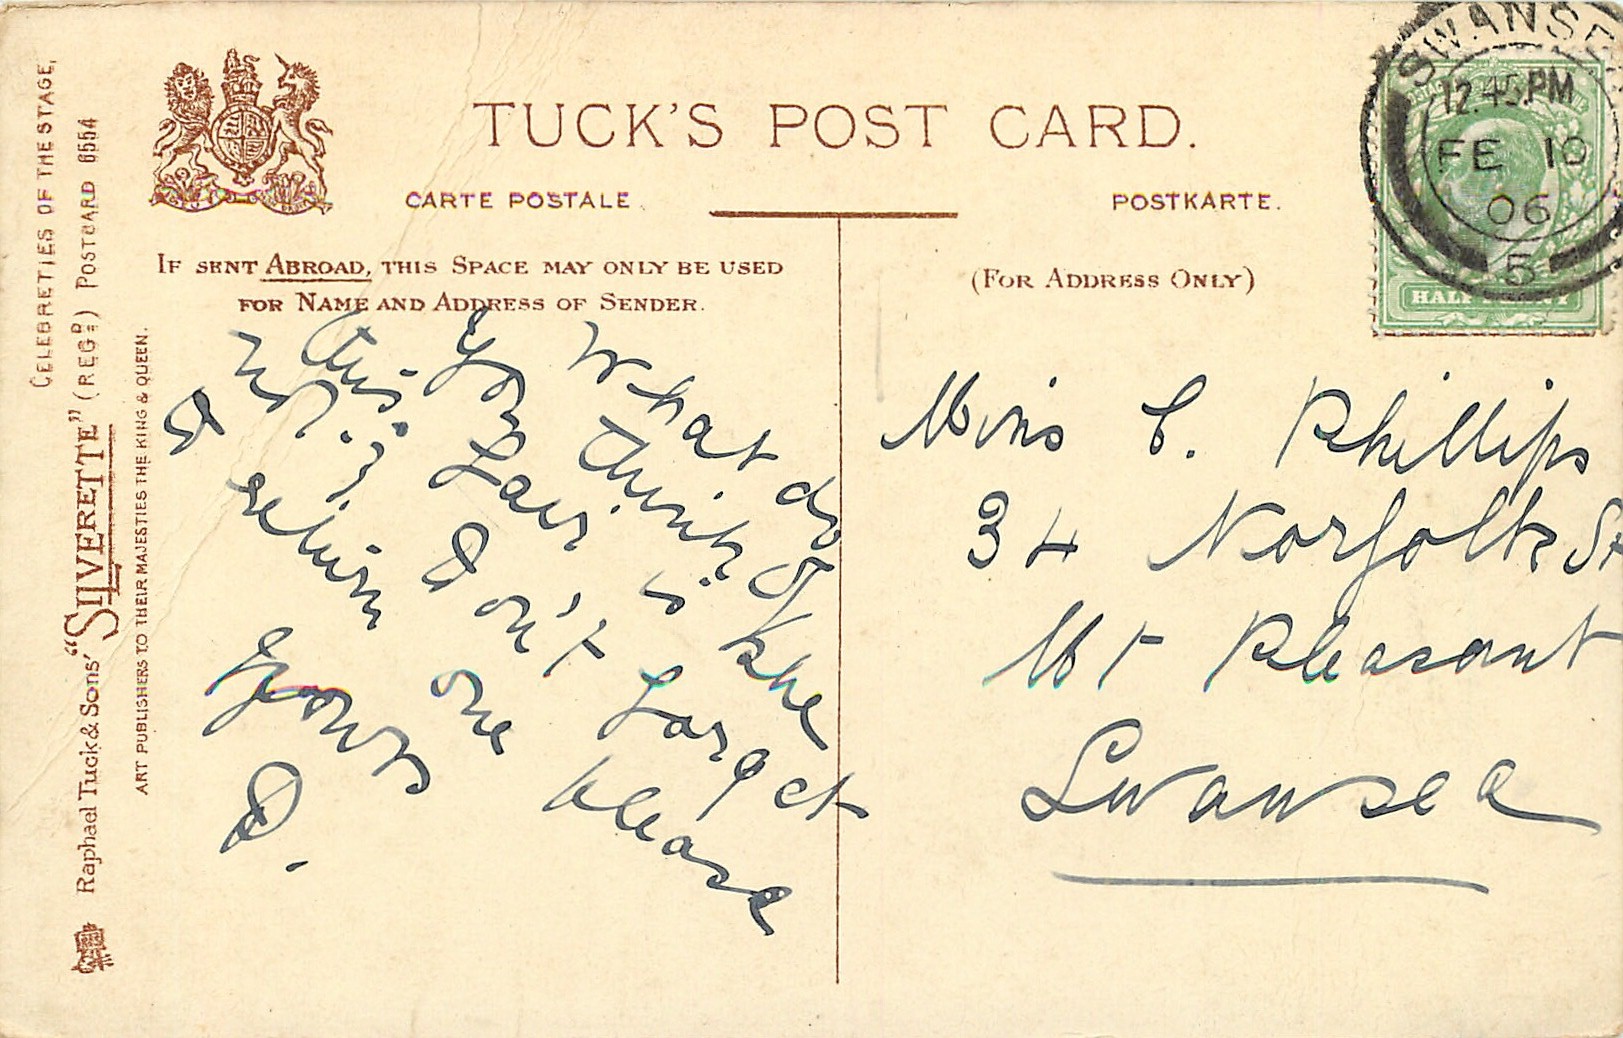 CELEBRETIES OF THE STAGE,
Raphael Tuck & Sons' "SILVERETTE" (REGD) POSTCARD 6554
ART PUBLISHERS TO THEIR MAJESTIES THE KING & QUEEN.
TUCK'S POST CARD.
CARTE POSTALE.
POSTKARTE.
IF SENT ABROAD, THIS SPACE MAY ONLY BE USED
FOR NAME AND ADDRESS OF SENDER.
(FOR ADDRESS ONLY)
SWANSEA
12.45 PM
FE 10
06
5
HALF PENNY
What do
you think of
this ? Fair is she
not? Don't forget
to return one please
Yours
D.
Miss C. Phillips
34 Norfolk St
Mt Pleasant
Swansea